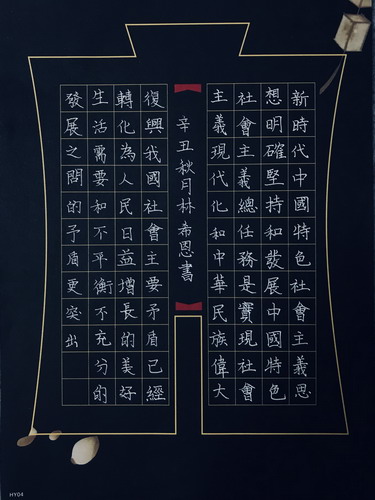 新時代中國特色社會主義思
想明確堅持和發展中國特色
社會主義總任務是實現社會
主義現代化和中華民族偉大
復興我國社會主要矛盾已經
轉化為人民日益增長的美好
生活需要和不平衡不充分的
發展之問的予盾更突出
辛丑秋月林希恩書
HY04